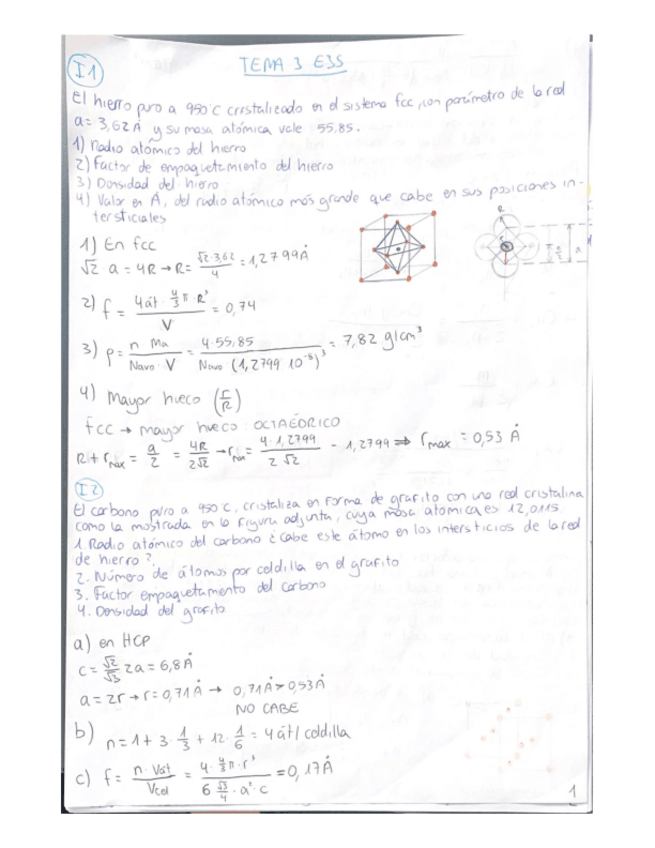 I1
TEMA 3 E3S
El hierro puro a 950°C cristalizado en el sistema fcc, con parámetro de la red
a = 3,62 Å y su masa atómica vale 55,85.
1) Radio atómico del hierro
2) Factor de empaquetamiento del hierro
3) Densidad del hierro
4) Valor en Å, del radio atómico más grande que cabe en sus posiciones in-
tersticiales
1) En fcc
√2 · a = 4R → R = √2·3,62 / 4 = 1,2799 Å
2) f = 4át · 4/3 π · R³ / V = 0,74
3) ρ = n · Ma / Navo · V = 4 · 55,85 / Navo · (1,2799 · 10⁻⁸)³ = 7,82 g/cm³
4) Mayor hueco (r/R)
fcc → mayor hueco: OCTAÉDRICO
R + rmáx = a/2 = 4R / 2√2 → rmáx = 4 · 1,2799 / 2√2 - 1,2799 ⇒ rmax = 0,53 Å
R
a
I2
El carbono puro a 950°C, cristaliza en forma de grafito con una red cristalina
como la mostrada en la figura adjunta, cuya masa atómica es 12,0115.
1. Radio atómico del carbono ¿cabe este átomo en los intersticios de la red
de hierro?
2. Número de átomos por celdilla en el grafito
3. Factor empaquetamiento del carbono
4. Densidad del grafito
a) en HCP
c = √2/√3 2a = 6,8 Å
a = 2r → r = 0,71 Å → 0,71 Å > 0,53 Å
NO CABE
b) n = 1 + 3 · 1/3 + 12 · 1/6 = 4 át/celdilla
c) f = n · Vát / Vcel = 4 · 4/3 π · r³ / 6 √3/4 · a² · c = 0,17 Å
1